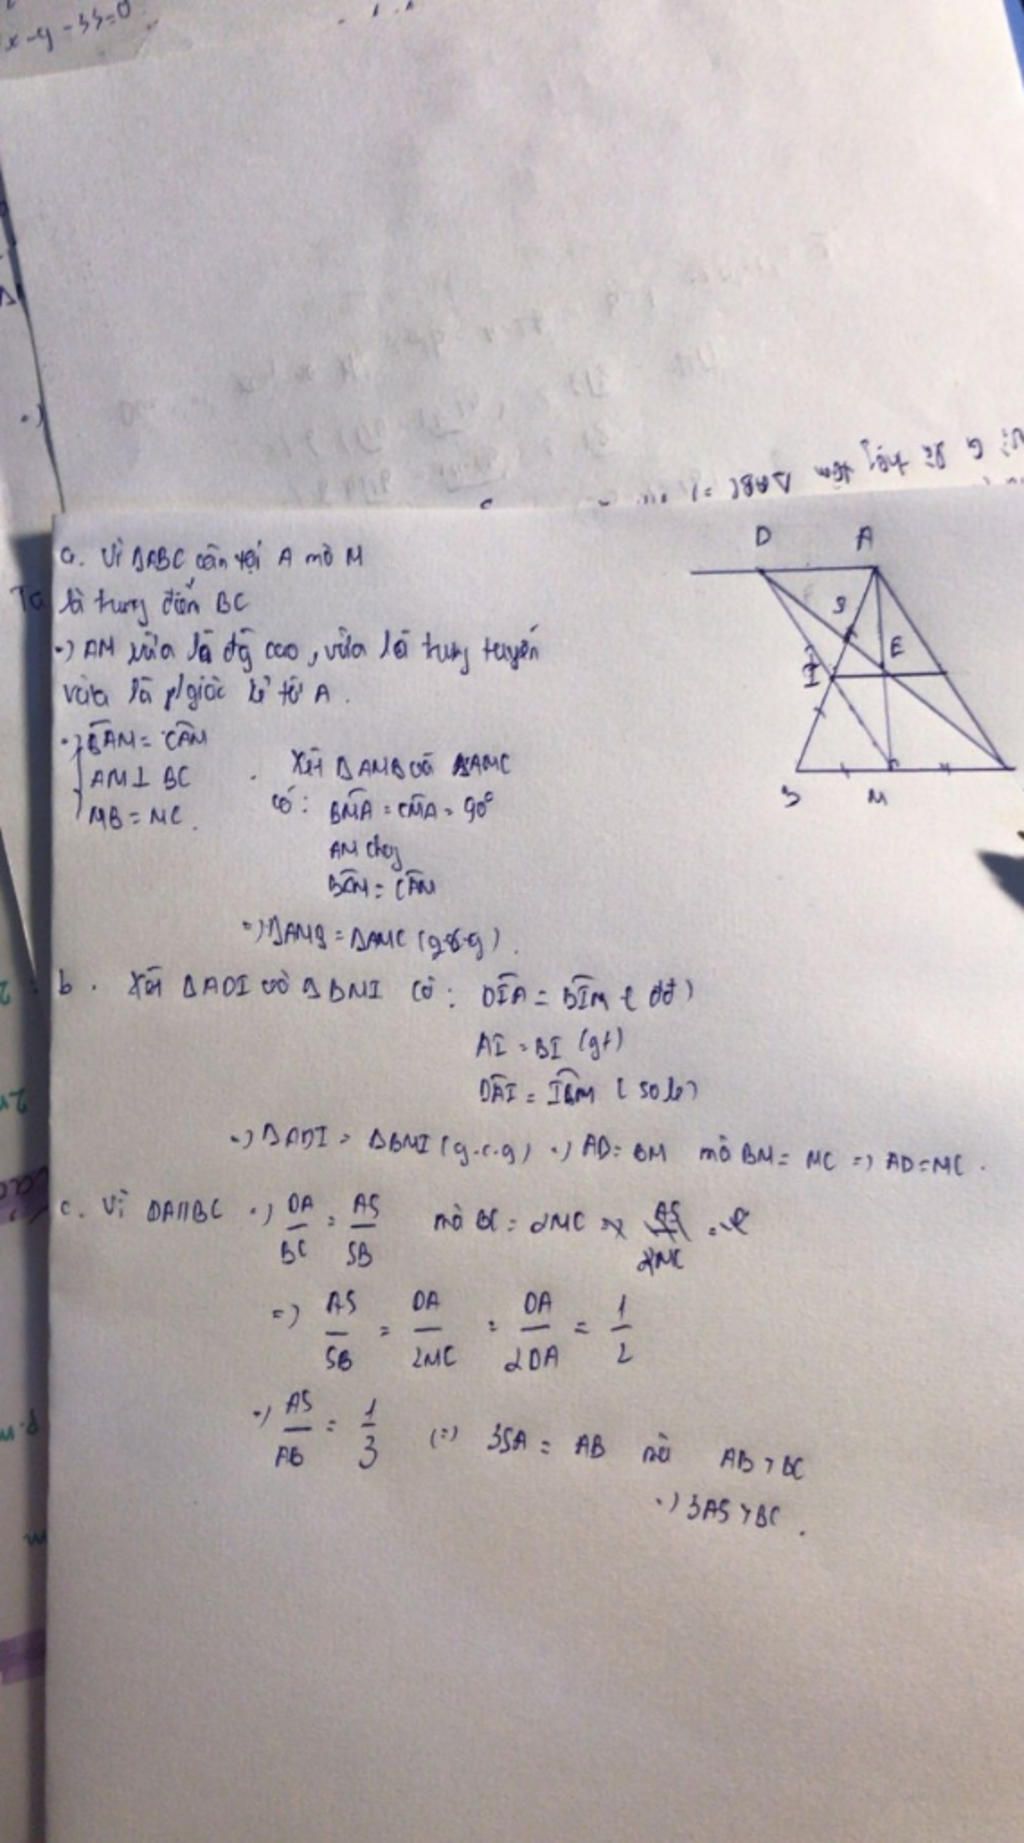 x-y-33=0
a. Vì ΔABC cân tại A mà M
là trung điểm BC
=> AM vừa là đg cao, vừa là trung tuyến
vừa là p/giác kẻ từ A.
=> BAM = CAM
AM ⊥ BC
MB = MC.
Xét ΔAMB và ΔAMC
có: BMA = CMA = 90°
AM chg
BAM = CAM
=> ΔAMB = ΔAMC (g.c.g).
b. Xét ΔADI và ΔBMI có: DIA = BIM (đđ)
AI = BI (gt)
DAI = IBM (sole)
=> ΔADI = ΔBMI (g.c.g) => AD = BM mà BM = MC => AD = MC.
c. Vì DA//BC => DA/BC = AS/SB mà BC = 2MC
=> AS/SB = DA/2MC = DA/2DA = 1/2
=> AS/AB = 1/3 (=) 3SA = AB mà AB > BC
=> 3AS > BC.
D A
S
E
I
B M